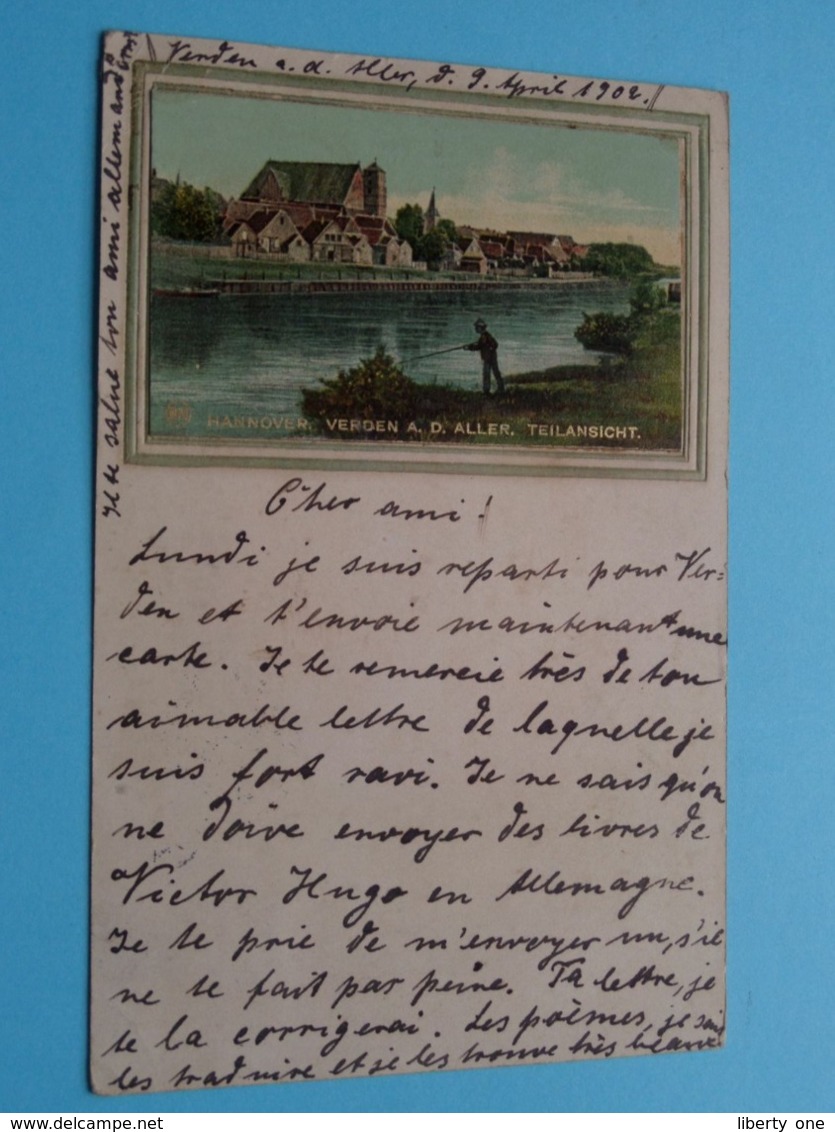 Verden a. d. Aller, d. 9. April 1902.
HANNOVER. VERDEN A. D. ALLER. TEILANSICHT.
Cher ami!
Lundi je suis reparti pour Ver=
den et t'envoie maintenant une
carte. Je te remercie très de ton
aimable lettre de laquelle je
suis fort ravi. Je ne sais qu'on
ne doive envoyer des livres de
Victor Hugo en Allemagne.
Je te prie de m'envoyer un, s'il
ne te fait pas peine. Ta lettre, je
te la corrigerai. Les poèmes, je sais
les traduire et je les trouve très beaux
Je te salue ton ami allemand
www.delcampe.net
liberty one